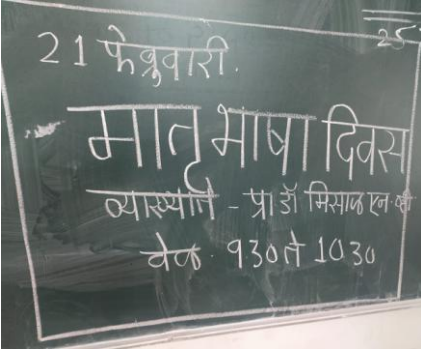 25
21 फेब्रुवारी.
मातृभाषा दिवस
व्याख्याते - प्रा डॉ मिसाळ एन. व्ही
वेळ. ९30 ते 1030